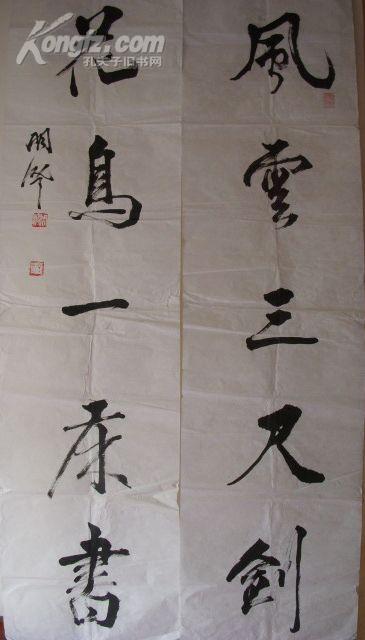 風雲三尺劍
花鳥一床書
Kongfz.com
孔夫子旧书网